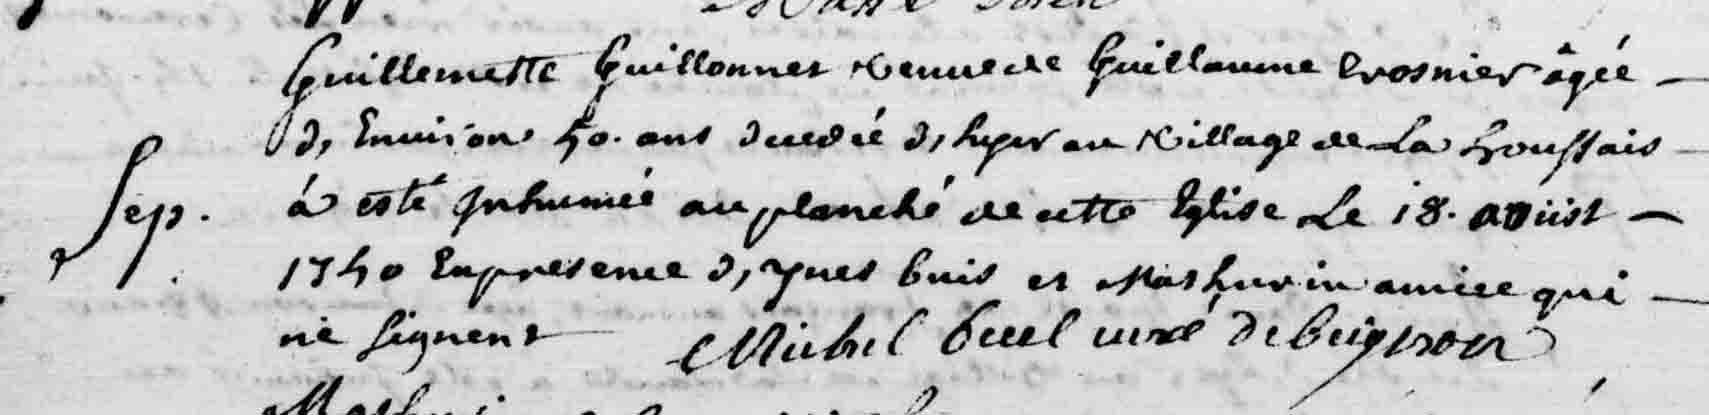 Guillemette Guillonnet veuve de Guillaume Crosnier âgée
d'Environ 50. ans decedée d'hyer au village de La houssais
Sep. à esté Inhumée au planché de cette Eglise Le 18. aoüst
1740 En presence d'yves buis et Mathurin amice qui
ne signent Michel curé de